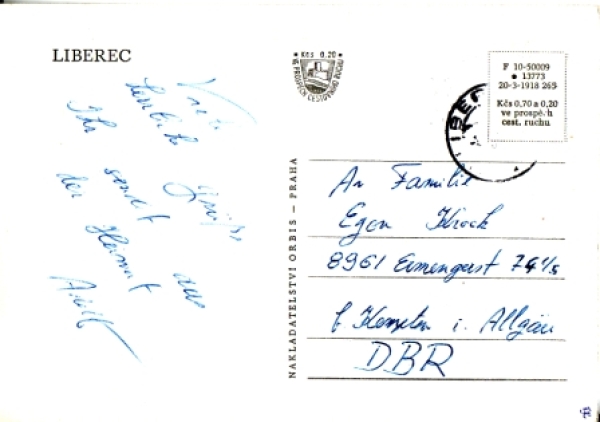 LIBEREC
Kčs 0,20
VE PROSPĚCH CESTOVNÍHO RUCHU
F 10-50009
13773
20-3-1918 265
Kčs 0,70 a 0,20
ve prospě.h
cest. ruchu
NAKLADATELSTVÍ ORBIS – PRAHA
Ihr sendet aus
der Heimat
Adolf
An Familie
Egon Krock
8961 Ermengerst 74 1/5
b Kempten i. Allgäu
DBR